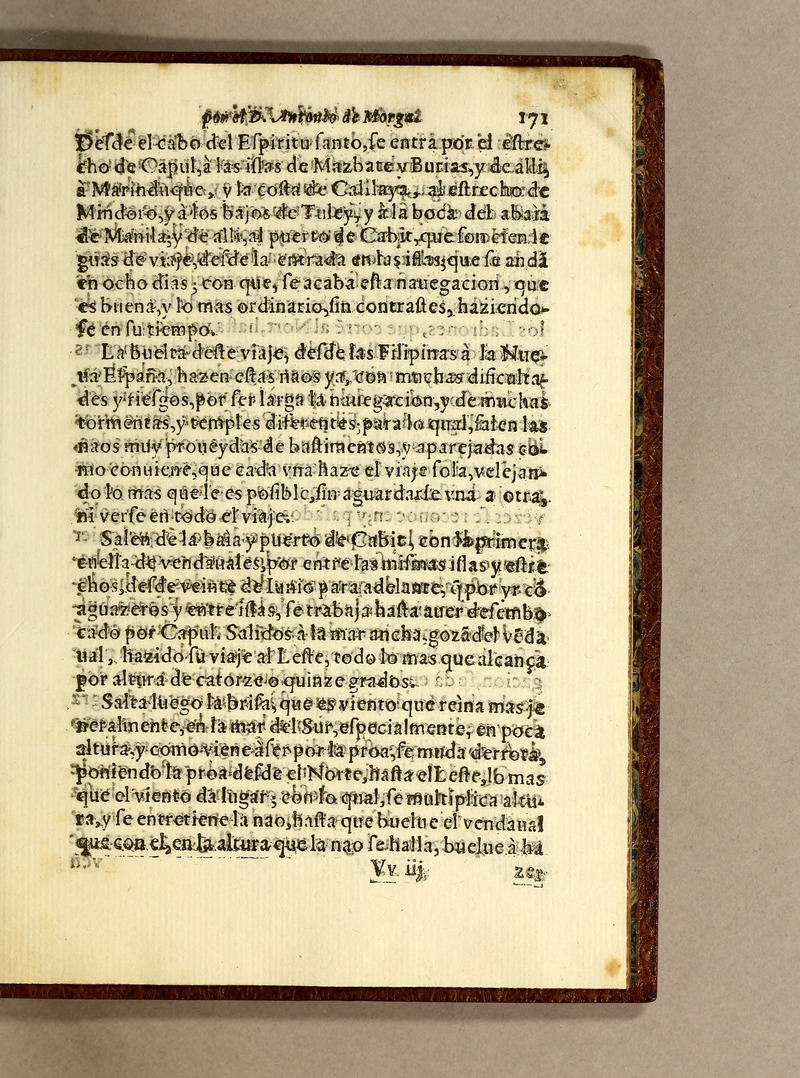 por el D. Antonio de Morga. 171
Desde el cabo del Espiritu santo, se entra por el estre-
cho de Capul, à las islas de Mazbate y Burias, y de alli,
à Marinduque, y la costa de Calilaya, al estrecho de
Mindoro, y à los bajos de Tuley, y à la boca del abaia
de Manila; y de alli, al puerto de Cabit, que son cien le
guas de viaje, desde la entrada en las islas; que se andã
en ocho dias; con que, se acaba esta nauegacion, que
es buena, y lo mas ordinario, sin contrastes, haziendo-
se en su tiempo.
La buelta deste viaje, desde las Filipinas à la Nue-
ua España, hazen estas naos ya, con muchas dificulta-
des y riesgos, por ser larga la nauegacion, y de muchas
tormentas, y temples diferentes; para lo qual, salen las
naos muy proueydas de bastimentos, y aparejadas co-
mo conuiene, que cada vna haze el viaje sola, velejan-
do lo mas que le es posible, sin aguardarse vna a otra,
ni verse en todo el viaje.
Salen, de la baia y puerto de Cabit, con la primera
cuella de vendauales, por entre las mismas islas y estre
chos, desde veinte de Iunio para adelante, q̃ por yr cõ
aguazeros y entre islas, se trabaja hasta auer desembo
cado por Capul. Salidos à la mar ancha, gozã del vẽda
ual, haziẽdo su viaje al Leste, todo lo mas que alcança
por altura de catorze o quinze grados.
Salta luego la brisa, que es viento que reina mas je
neralmente, en la mar del Sur, especialmente, en poca
altura, y como viene à ser por la proa, se muda derrota,
poniendo la proa desde el Norte, hasta el Leste, lo mas
que el viento dà lugar; con lo qual, se multiplica altu-
ra, y se entretiene la nao, hasta que buelue el vendaual
que con el, en la altura que la nao se halla, buelue à ha
Vv iij zer